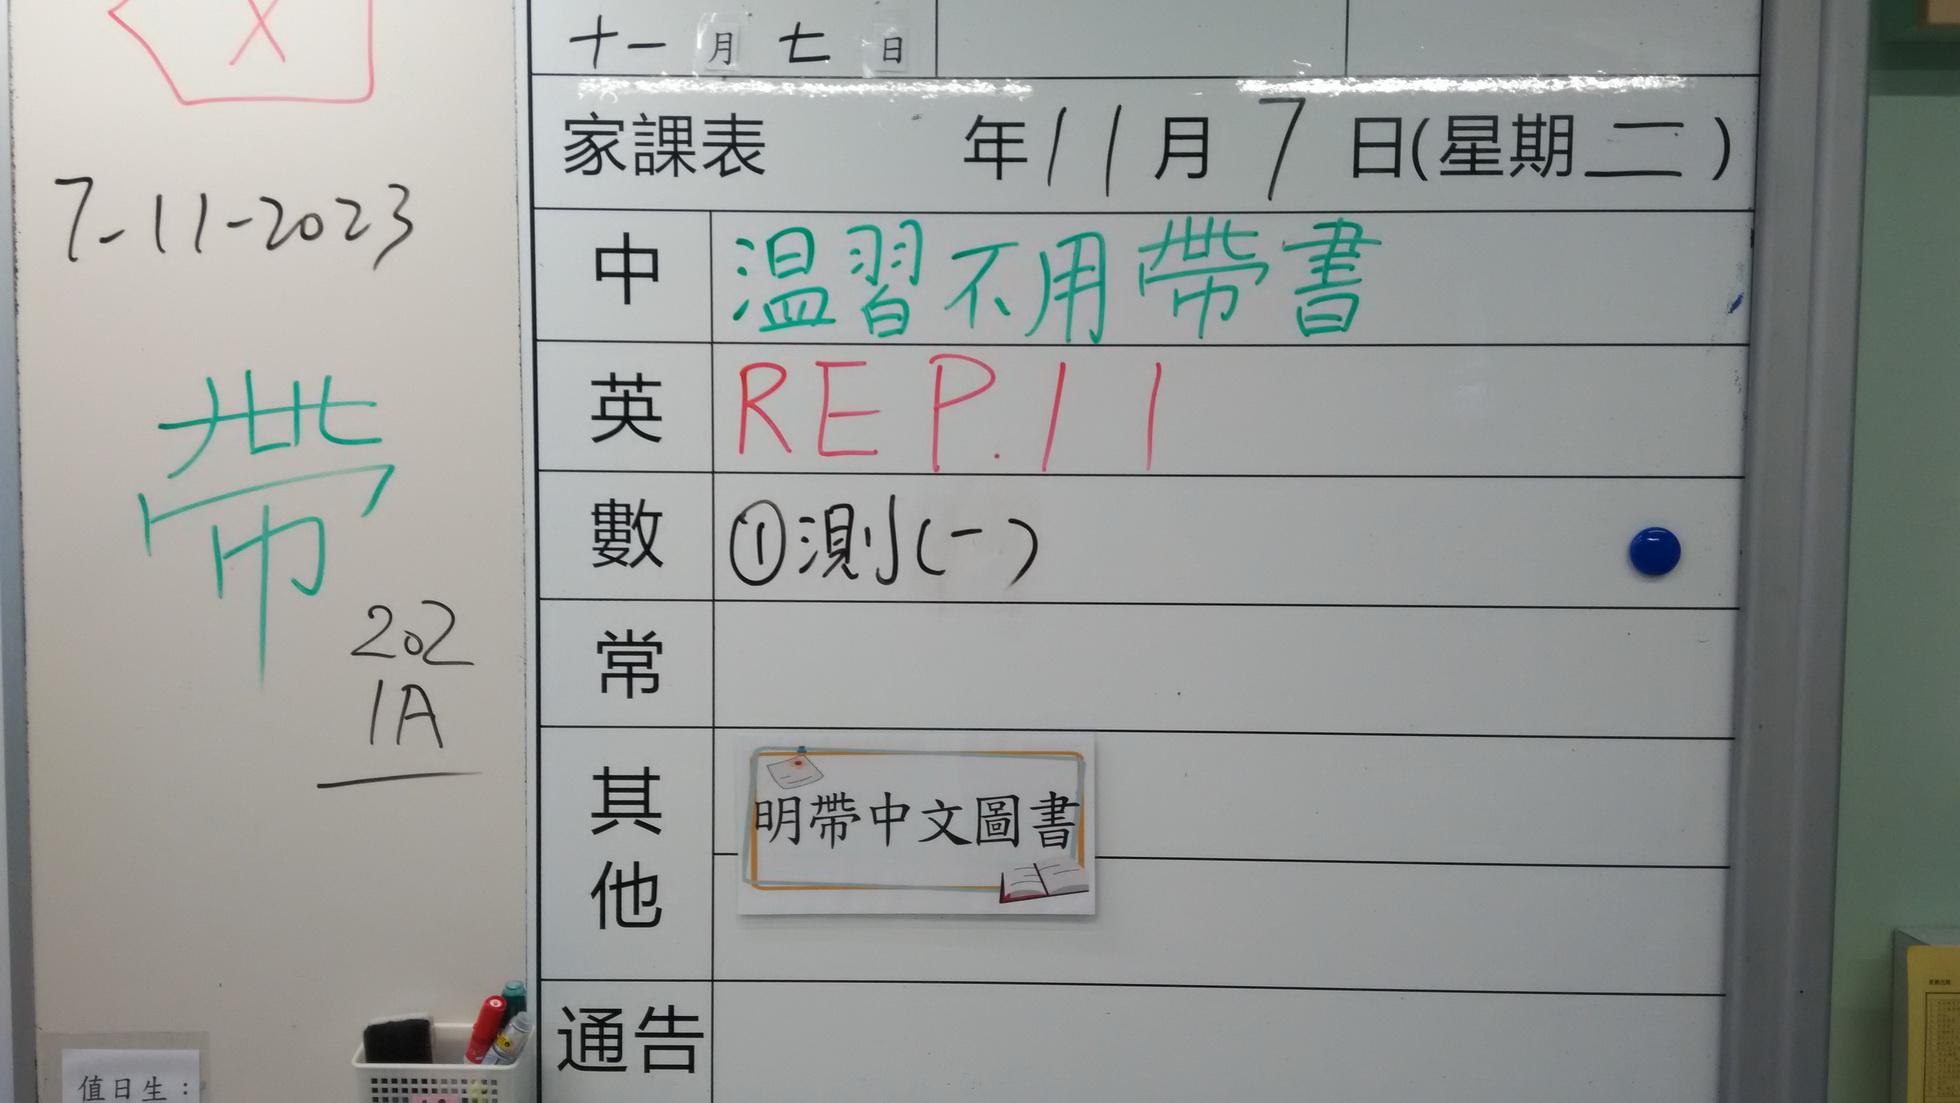 X
7-11-2023
帶
202
1A
值日生：
十一月七日
家課表 年11月7日(星期二)
中 溫習不用帶書
英 RE P.11
數 ①測(一)
常
其他 明帶中文圖書
通告